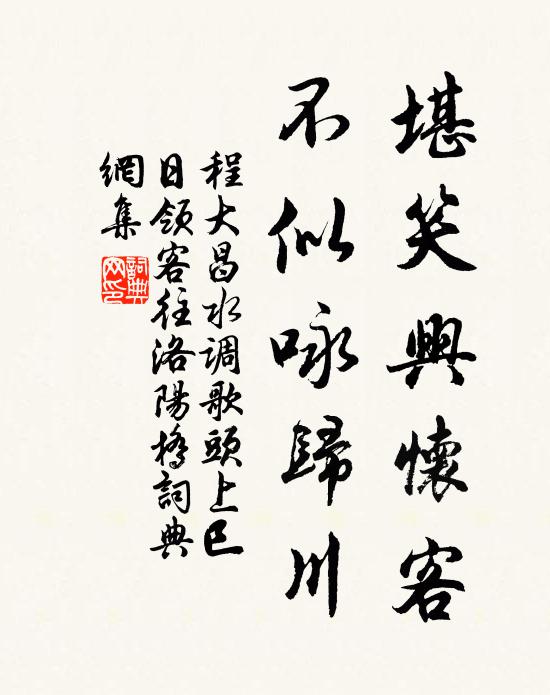 堪笑興懷客
不似咏歸川
程大昌水调歌頭上巳
日領客往洛陽橋詞典
網集
詞典
网印